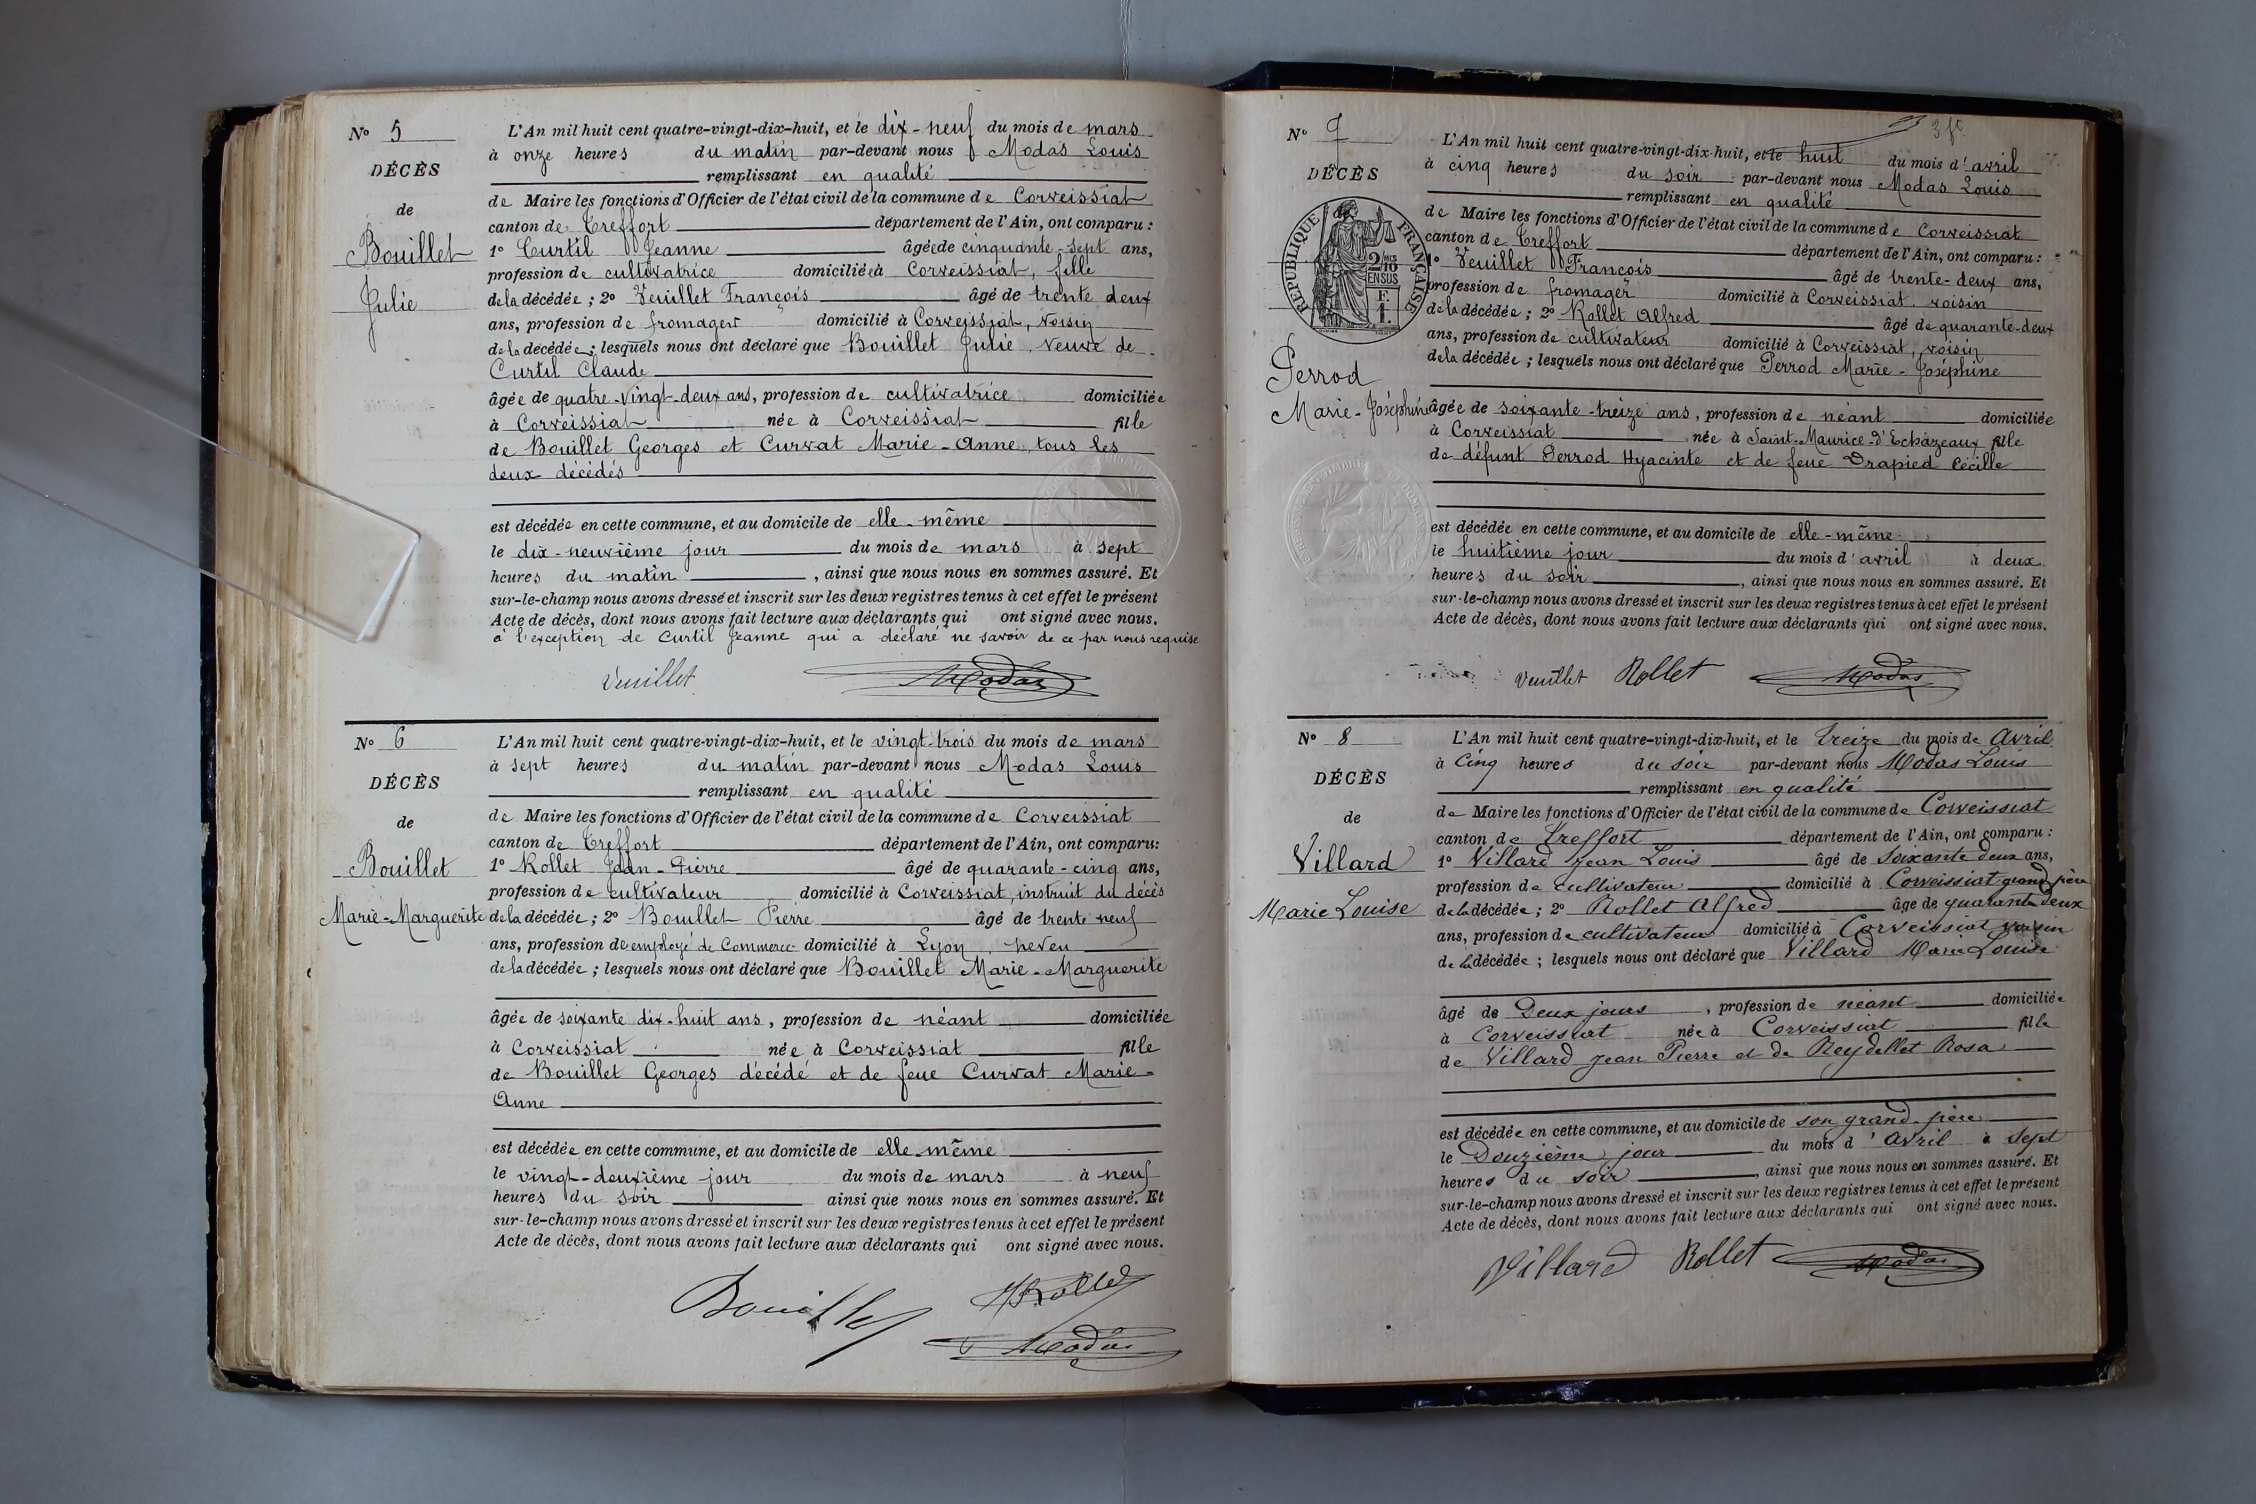 N° 5
DÉCÈS
de
Bouillet
Julie
L'An mil huit cent quatre-vingt-dix-huit, et le dix-neuf du mois de mars
à onze heures du matin par-devant nous Modas Louis
remplissant en qualité
de Maire les fonctions d'Officier de l'état civil de la commune de Corveissiat
canton de Treffort département de l'Ain, ont comparu :
1° Curtil Jeanne âgée de cinquante-sept ans,
profession de cultivatrice domiciliée à Corveissiat, fille
de la décédée ; 2° Veuillet François âgé de trente deux
ans, profession de fromager domicilié à Corveissiat, voisin
de la décédée ; lesquels nous ont déclaré que Bouillet Julie, veuve de
Curtil Claude
âgée de quatre-vingt-deux ans, profession de cultivatrice domiciliée
à Corveissiat née à Corveissiat fille
de Bouillet Georges et Curvat Marie-Anne, tous les
deux décédés
est décédée en cette commune, et au domicile de elle-même
le dix-neuvième jour du mois de mars à sept
heures du matin, ainsi que nous nous en sommes assuré. Et
sur-le-champ nous avons dressé et inscrit sur les deux registres tenus à cet effet le présent
Acte de décès, dont nous avons fait lecture aux déclarants qui ont signé avec nous.
à l'exception de Curtil Jeanne qui a déclaré ne savoir de ce par nous requise
Veuillet Modas
N° 6
DÉCÈS
de
Bouillet
Marie-Marguerite
L'An mil huit cent quatre-vingt-dix-huit, et le vingt-trois du mois de mars
à sept heures du matin par-devant nous Modas Louis
remplissant en qualité
de Maire les fonctions d'Officier de l'état civil de la commune de Corveissiat
canton de Treffort département de l'Ain, ont comparu :
1° Rollet Jean-Pierre âgé de quarante-cinq ans,
profession de cultivateur domicilié à Corveissiat, instruit du décès
de la décédée ; 2° Bouillet Pierre âgé de trente neuf
ans, profession de employé de Commerce domicilié à Lyon, neveu
de la décédée ; lesquels nous ont déclaré que Bouillet Marie-Marguerite
âgée de soixante dix-huit ans, profession de néant domiciliée
à Corveissiat née à Corveissiat fille
de Bouillet Georges décédé et de feue Curvat Marie-
Anne
est décédée en cette commune, et au domicile de elle même
le vingt-deuxième jour du mois de mars à neuf
heures du soir ainsi que nous nous en sommes assuré. Et
sur-le-champ nous avons dressé et inscrit sur les deux registres tenus à cet effet le présent
Acte de décès, dont nous avons fait lecture aux déclarants qui ont signé avec nous.
Bouillet Rollet
Modas
N° 7
DÉCÈS
RÉPUBLIQUE FRANÇAISE
2/10
EN SUS
F.
1.
Perrod
Marie-Joséphine
L'An mil huit cent quatre-vingt-dix-huit, et le huit du mois d'avril
à cinq heures du soir par-devant nous Modas Louis
remplissant en qualité
de Maire les fonctions d'Officier de l'état civil de la commune de Corveissiat
canton de Treffort département de l'Ain, ont comparu :
1° Veuillet François âgé de trente-deux ans,
profession de fromager domicilié à Corveissiat, voisin
de la décédée ; 2° Rollet Alfred âgé de quarante-deux
ans, profession de cultivateur domicilié à Corveissiat, voisin
de la décédée ; lesquels nous ont déclaré que Perrod Marie-Joséphine
âgée de soixante-treize ans, profession de néant domiciliée
à Corveissiat née à Saint-Maurice-d'Echazeaux fille
de défunt Perrod Hyacinte et de feue Drapied Cécille
est décédée en cette commune, et au domicile de elle-même
le huitième jour du mois d'avril à deux
heures du soir, ainsi que nous nous en sommes assuré. Et
sur-le-champ nous avons dressé et inscrit sur les deux registres tenus à cet effet le présent
Acte de décès, dont nous avons fait lecture aux déclarants qui ont signé avec nous.
Veuillet Rollet Modas
N° 8
DÉCÈS
de
Villard
Marie Louise
L'An mil huit cent quatre-vingt-dix-huit, et le treize du mois de Avril
à Cinq heures du soir par-devant nous Modas Louis
remplissant en qualité
de Maire les fonctions d'Officier de l'état civil de la commune de Corveissiat
canton de Treffort département de l'Ain, ont comparu :
1° Villard Jean Louis âgé de Soixante deux ans,
profession de cultivateur domicilié à Corveissiat grand père
de la décédée ; 2° Rollet Alfred âgé de quarante deux
ans, profession de cultivateur domicilié à Corveissiat voisin
de la décédée ; lesquels nous ont déclaré que Villard Marie Louise
âgé de Deux jours, profession de néant domiciliée
à Corveissiat née à Corveissiat fille
de Villard Jean Pierre et de Reydellet Rosa
est décédée en cette commune, et au domicile de son grand père
le Douzième jour du mois d'Avril à Sept
heures du soir, ainsi que nous nous en sommes assuré. Et
sur-le-champ nous avons dressé et inscrit sur les deux registres tenus à cet effet le présent
Acte de décès, dont nous avons fait lecture aux déclarants qui ont signé avec nous.
Villard Rollet Modas